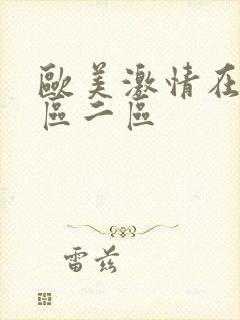 歐美激情在
區二區
雷茲